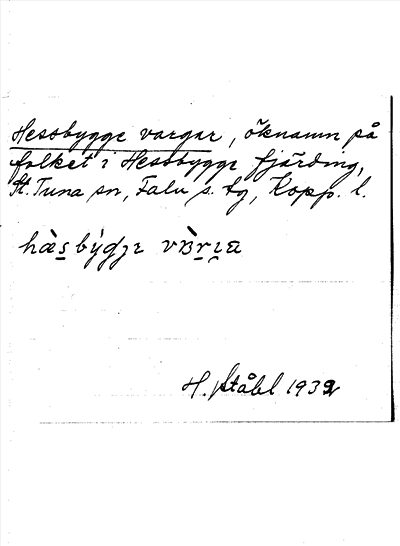 Hessbygge vargar, öknamn på
folket i Hessbygge fjärding,
St. Tuna sn, Falu s. tg, Kopp. l.
H. Ståhl 1932